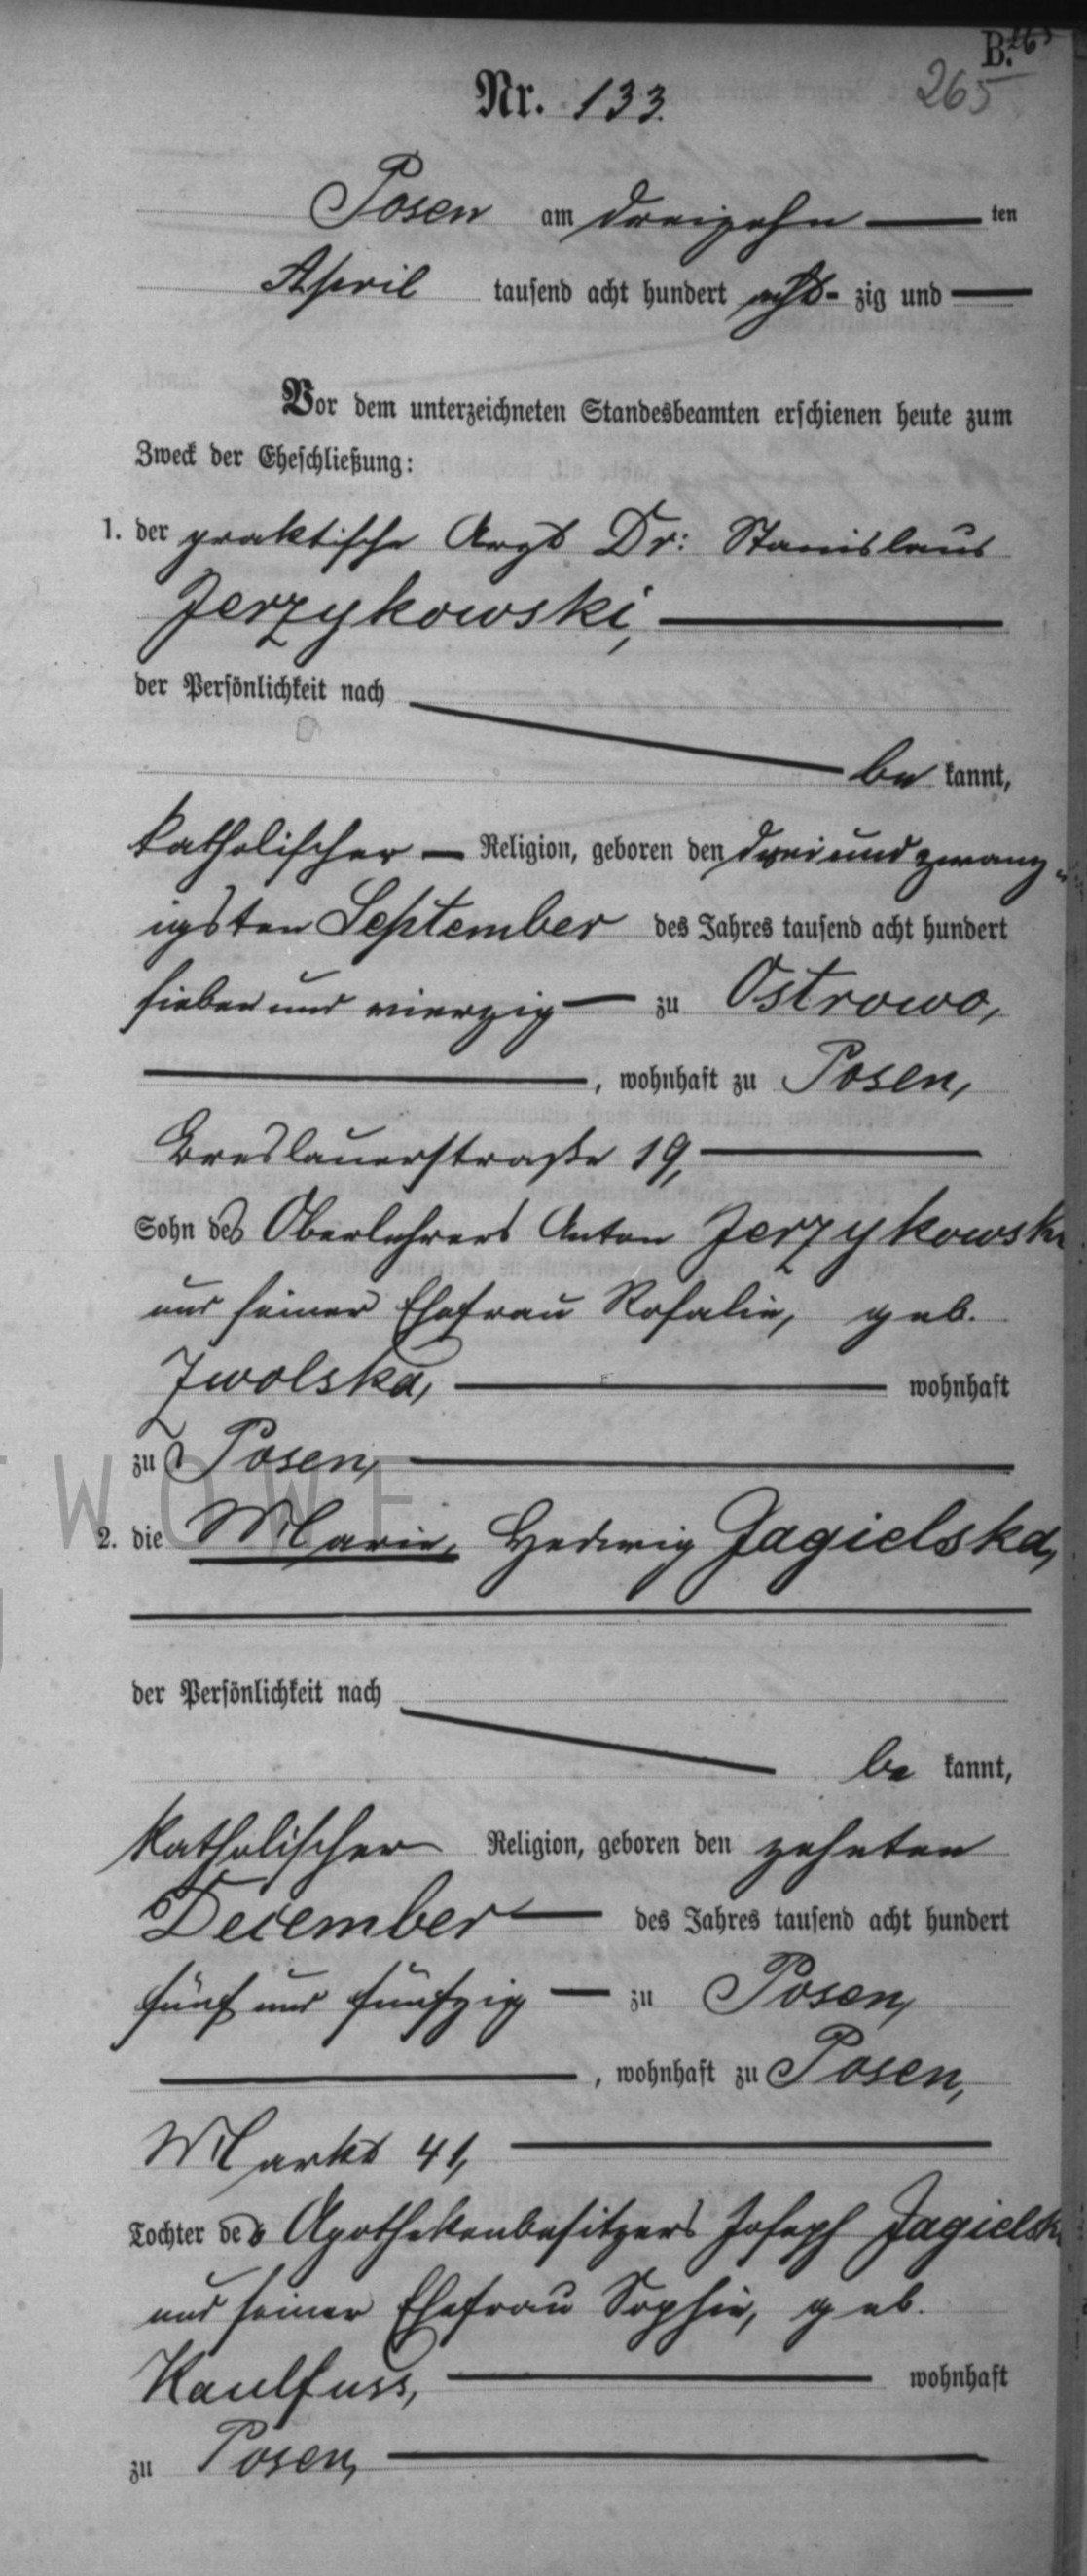 B. 265
265
Nr. 133.
Posen am dreizehn ten
April tausend acht hundert acht- zig und
Vor dem unterzeichneten Standesbeamten erschienen heute zum
Zweck der Eheschließung:
1. der praktische Arzt Dr: Stanislaus
Jerzykowski,
der Persönlichkeit nach
be kannt,
katholischer Religion, geboren den drei und zwanz-
igsten September des Jahres tausend acht hundert
sieben und vierzig zu Ostrowo,
, wohnhaft zu Posen,
Breslauerstraße 19,
Sohn des Oberlehrers Anton Jerzykowski
und seiner Ehefrau Rosalie, geb.
Zwolska, wohnhaft
zu Posen,
2. die Marie, Hedwig Jagielska,
der Persönlichkeit nach
be kannt,
katholischer Religion, geboren den zehnten
December des Jahres tausend acht hundert
fünf und fünfzig zu Posen,
, wohnhaft zu Posen,
Markt 41,
Tochter des Apothekenbesitzers Joseph Jagielski
und seiner Ehefrau Sophie, geb.
Kaulfuss, wohnhaft
zu Posen,